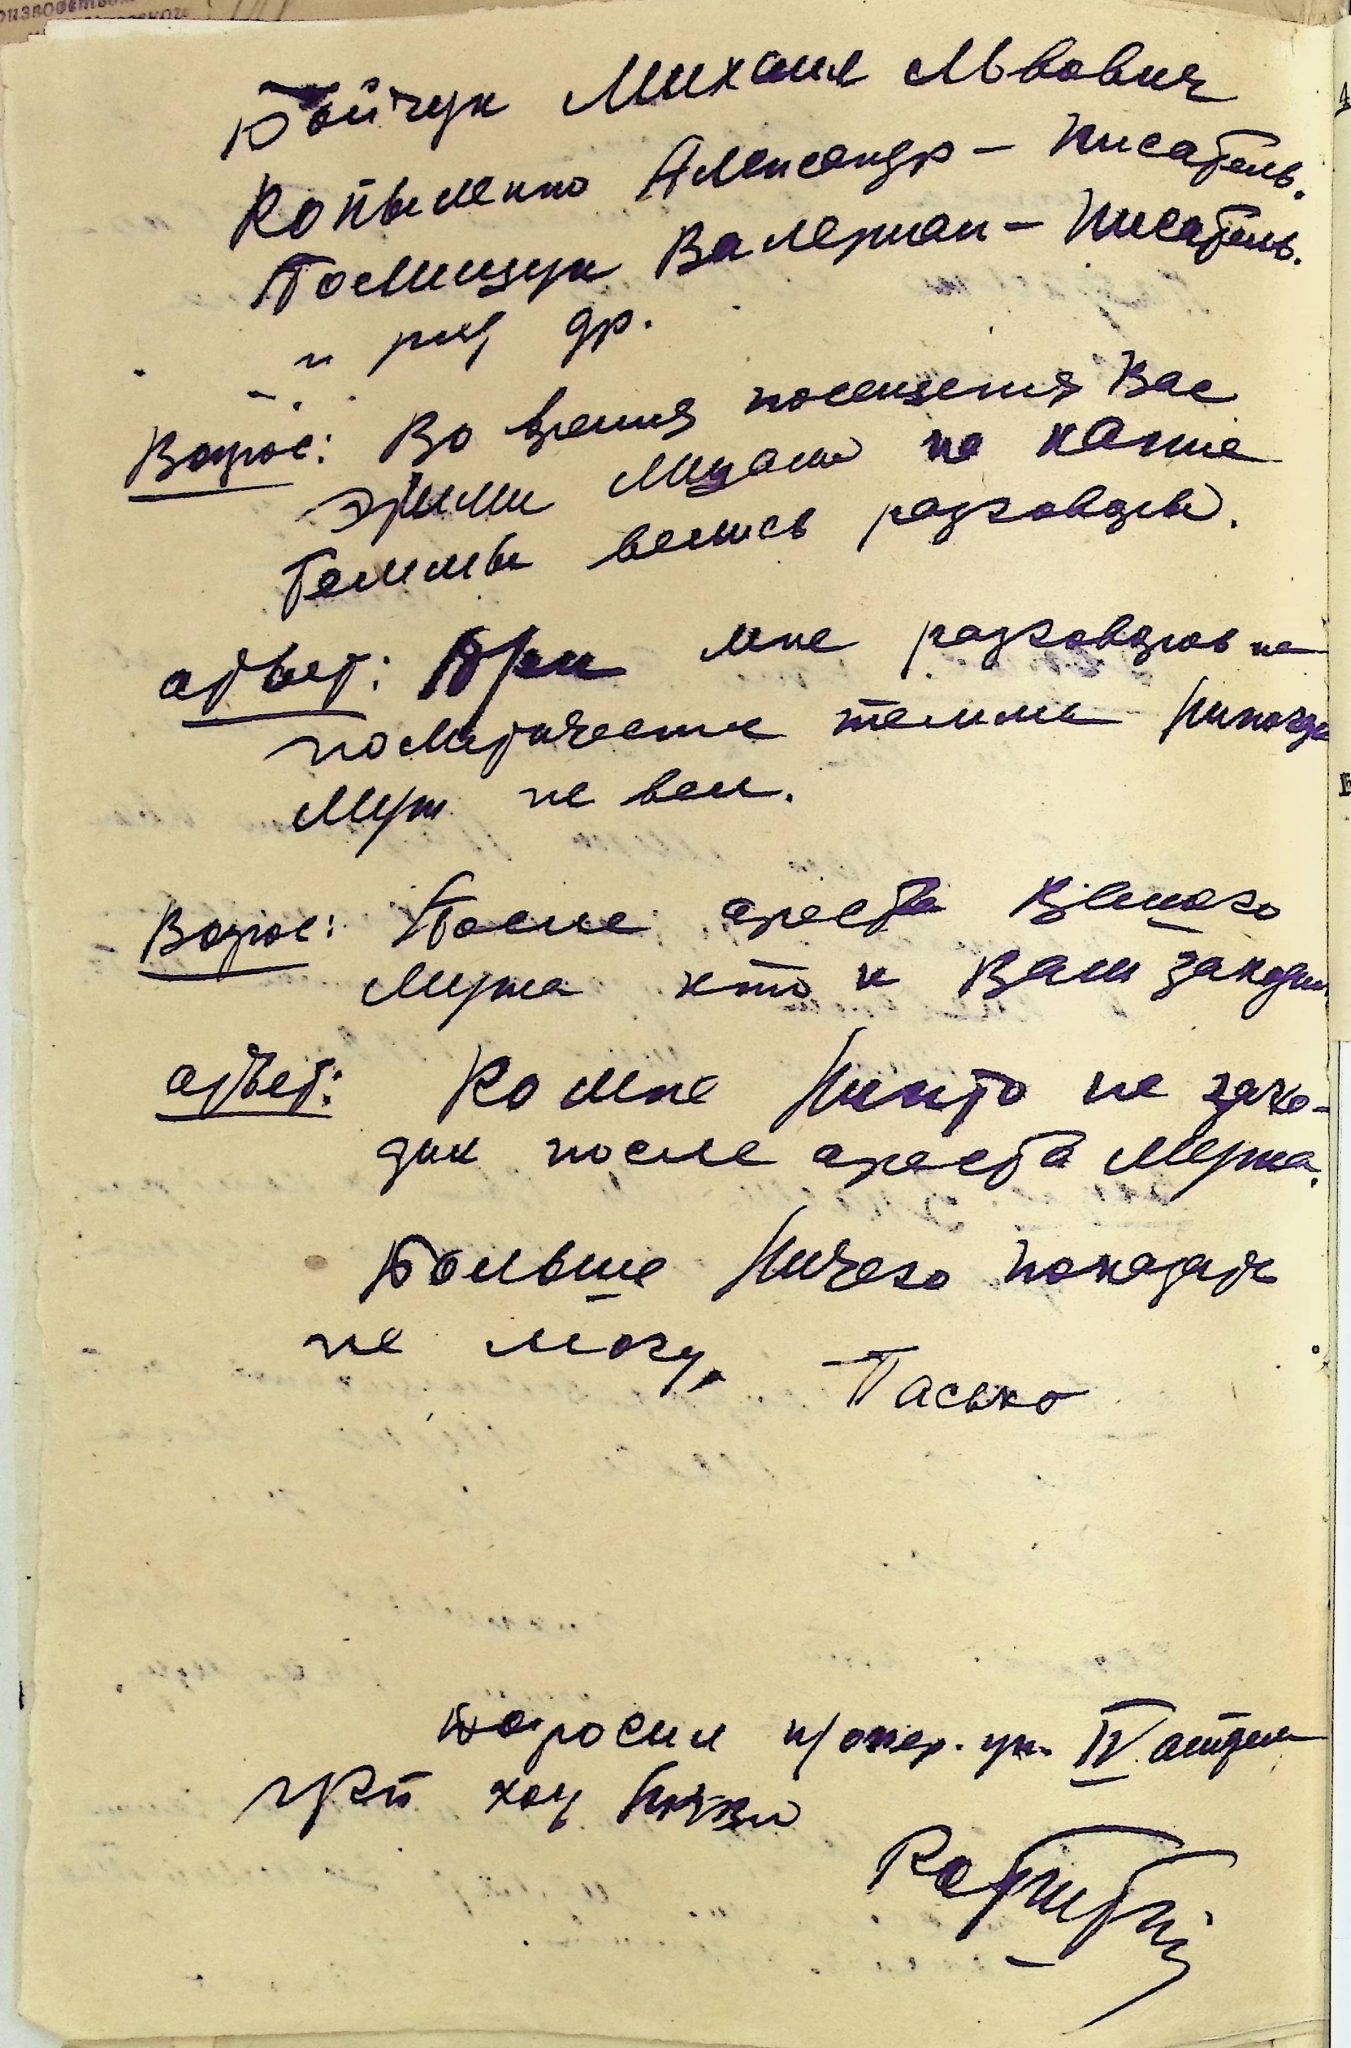 Бойчук Михаил Львович
Копыленко Александр – писатель.
Полищук Валериан – писатель.
и ряд др.
Вопрос: Во время посещения Вас
этими лицами на какие
теммы велись разговоры.
Ответ: При мне разговоров на
политические теммы никогда
муж не вел.
Вопрос: После ареста Вашего
мужа кто к Вам заходил
Ответ: Ко мне никто не захо-
дил после ареста мужа.
Больше ничего показать
не могу. Пасько
Допросил п/опер. уп. IV отдела
УГБ ХОУ НКВД